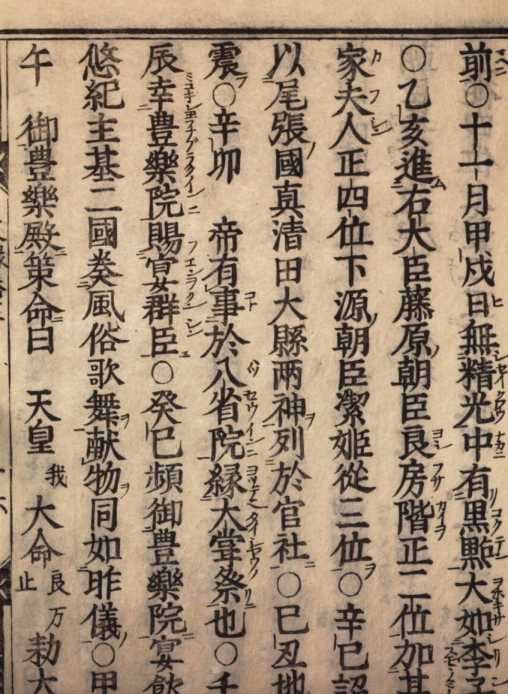 前○十一月甲戌日無精光中有黒點大如李子
○乙亥進右大臣藤原朝臣良房階正二位加其
家夫人正四位下源朝臣潔姫從三位○辛巳詔
以尾張國真清田大縣兩神列於官社○己丑地
震○辛卯 帝有事於八省院縁大甞祭也○壬
辰幸豊樂院賜宴群臣○癸巳頻御豊樂院宴飲
悠紀主基二國奏風俗歌舞獻物同如昨儀○甲
午 御豊樂殿策命曰 天皇我大命良万止勅大